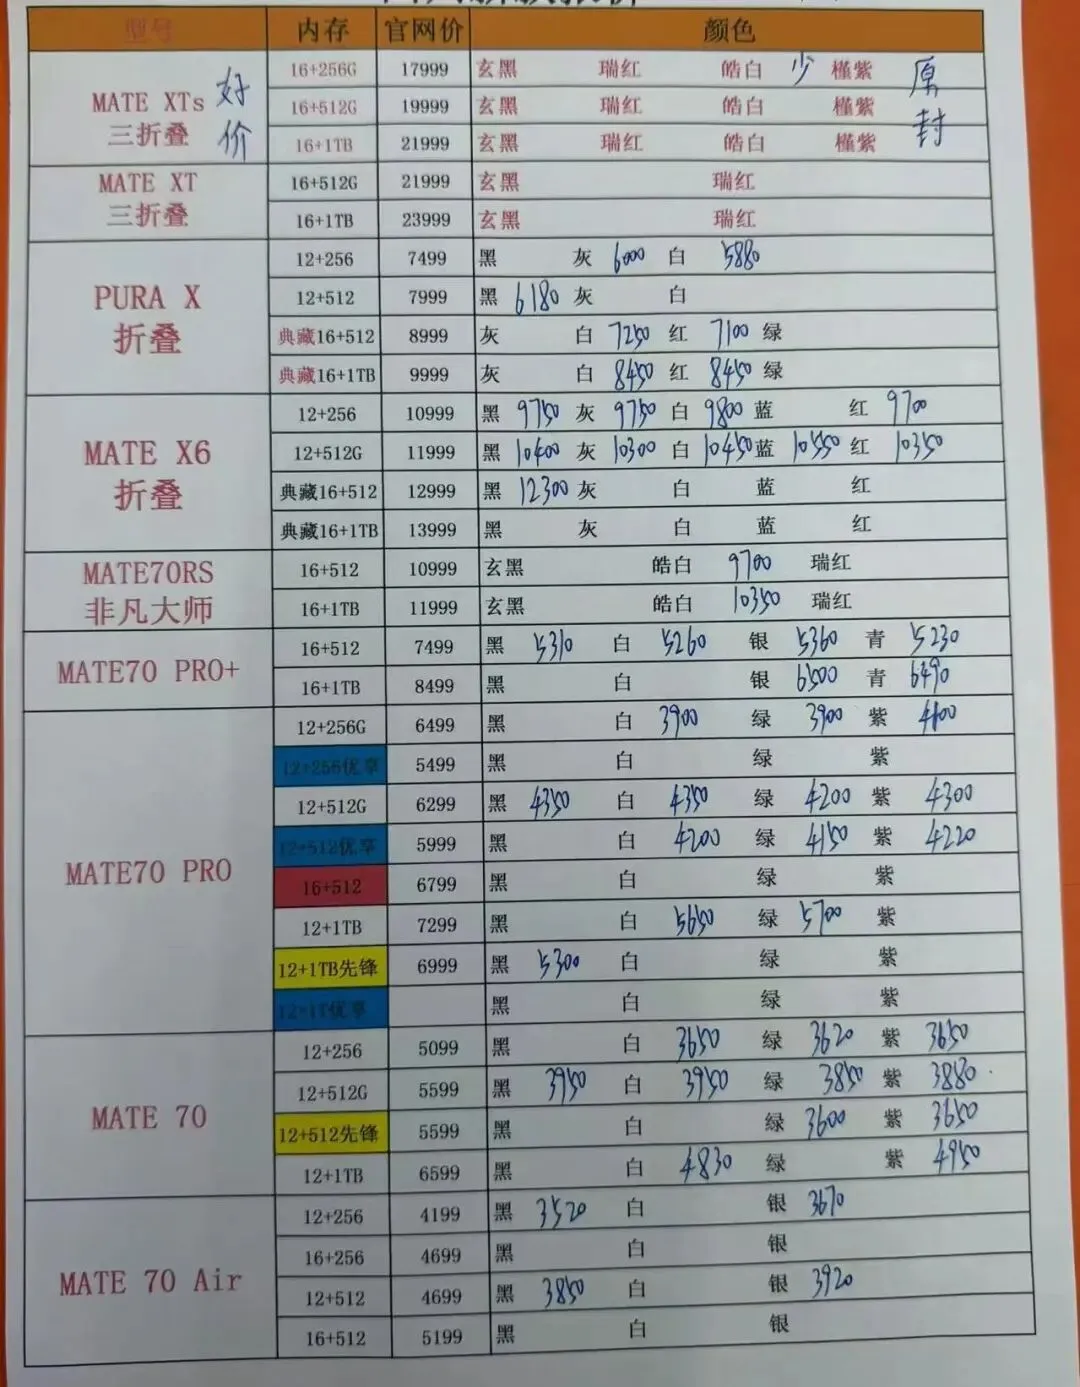 型号 内存 官网价 颜色
MATE XTs 三折叠 好价 16+256G 17999 玄黑 瑞红 皓白 少 槿紫 原封
16+512G 19999 玄黑 瑞红 皓白 槿紫
16+1TB 21999 玄黑 瑞红 皓白 槿紫
MATE XT 三折叠 16+512G 21999 玄黑 瑞红
16+1TB 23999 玄黑 瑞红
PURA X 折叠 12+256 7499 黑 灰 6000 白 5880
12+512 7999 黑 6180 灰 白
典藏16+512 8999 灰 白 7250 红 7100 绿
典藏16+1TB 9999 灰 白 8450 红 8450 绿
MATE X6 折叠 12+256 10999 黑 9750 灰 9750 白 9800 蓝 红 9700
12+512G 11999 黑 10400 灰 10300 白 10450 蓝 10550 红 10350
典藏16+512 12999 黑 12300 灰 白 蓝 红
典藏16+1TB 13999 黑 灰 白 蓝 红
MATE70RS 非凡大师 16+512 10999 玄黑 皓白 9700 瑞红
16+1TB 11999 玄黑 皓白 10350 瑞红
MATE70 PRO+ 16+512 7499 黑 5310 白 5260 银 5360 青 5230
16+1TB 8499 黑 白 银 6500 青 6490
MATE70 PRO 12+256G 6499 黑 白 3900 绿 3900 紫 4100
12+256优享 5499 黑 白 绿 紫
12+512G 6299 黑 4350 白 4350 绿 4200 紫 4300
12+512优享 5999 黑 白 4200 绿 4150 紫 4220
16+512 6799 黑 白 绿 紫
12+1TB 7299 黑 白 5650 绿 5700 紫
12+1TB先锋 6999 黑 5300 白 绿 紫
12+1T优享 黑 白 绿 紫
MATE 70 12+256 5099 黑 白 3650 绿 3620 紫 3650
12+512G 5599 黑 3950 白 3950 绿 3850 紫 3880
12+512先锋 5599 黑 白 绿 3600 紫 3650
12+1TB 6599 黑 白 4830 绿 紫 4950
MATE 70 Air 12+256 4199 黑 3520 白 银 3670
16+256 4699 黑 白 银
12+512 4699 黑 3850 白 银 3920
16+512 5199 黑 白 银